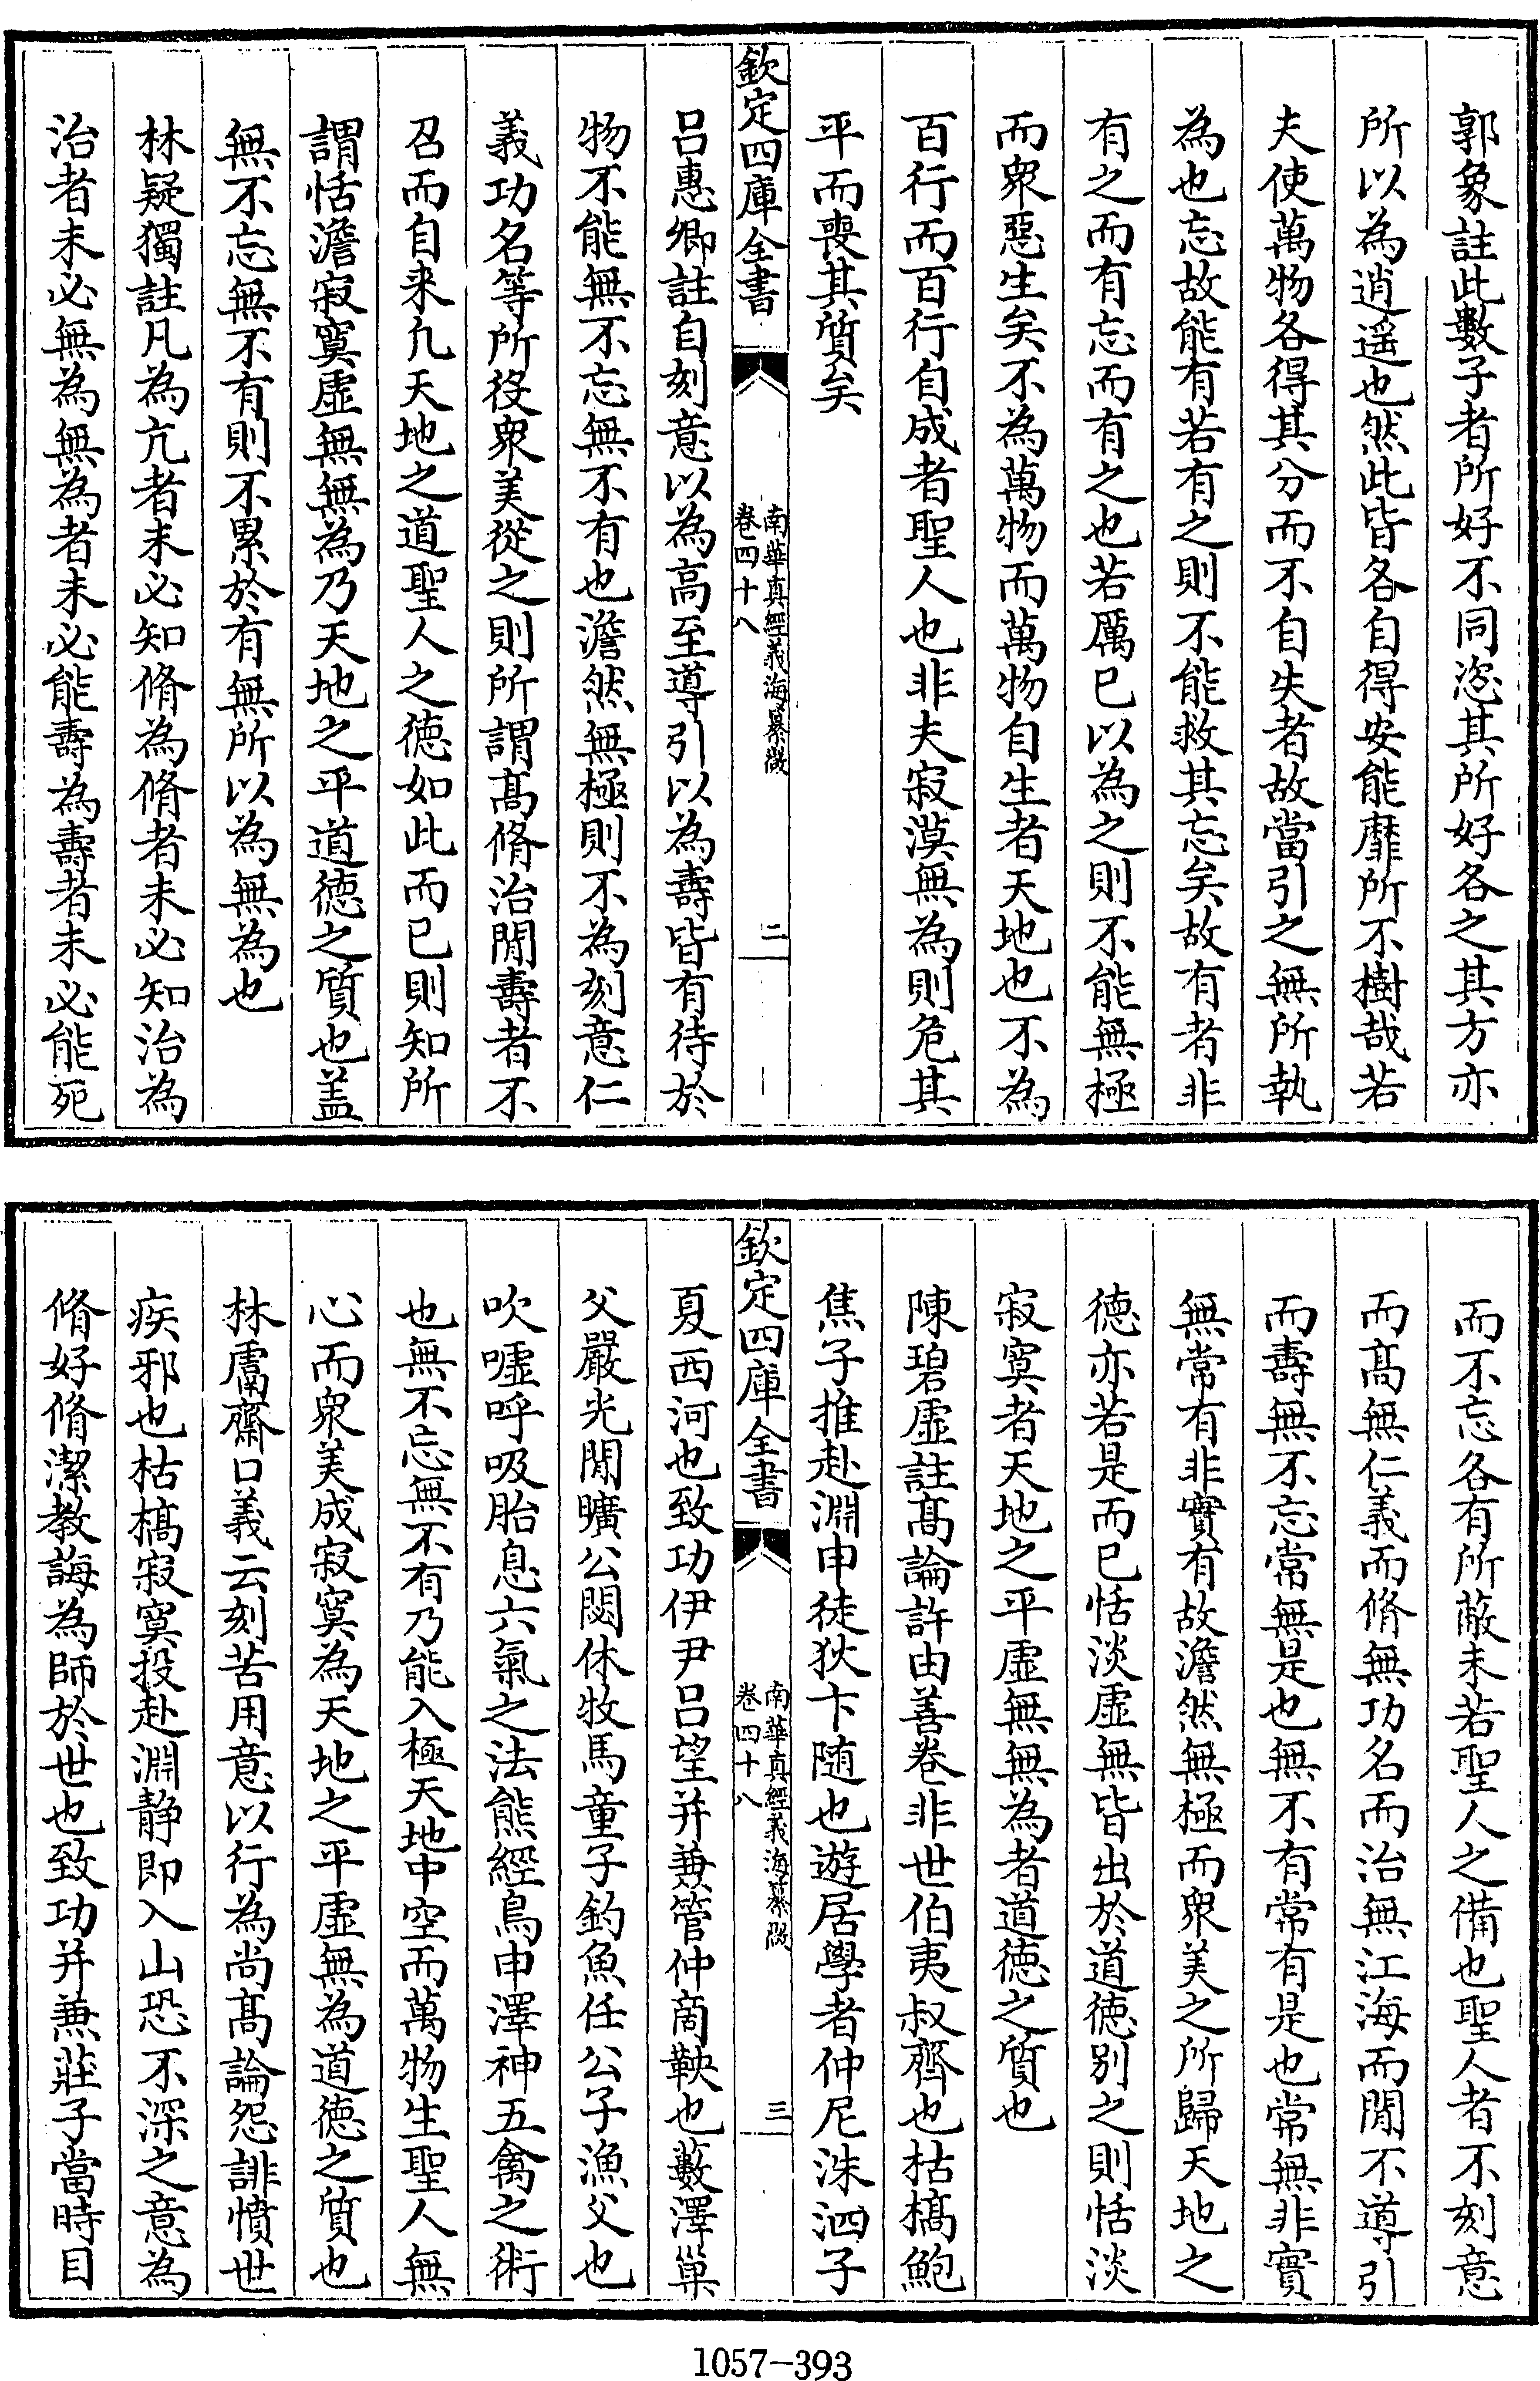 郭象註此數子者所好不同恣其所好各之其方亦
所以為逍遥也然此皆各自得安能靡所不樹哉若
夫使萬物各得其分而不自失者故當引之無所執
為也忘故能有若有之則不能救其忘矣故有者非
有之而有忘而有之也若厲已以為之則不能無極
而衆惡生矣不為萬物而萬物自生者天地也不為
百行而百行自成者聖人也非夫寂漠無為則危其
平而喪其質矣
欽定四庫全書
南華真經義海纂微
卷四十八
二
吕惠卿註自刻意以為高至導引以為壽皆有待於
物不能無不忘無不有也澹然無極則不為刻意仁
義功名等所役衆美從之則所謂髙脩治閒壽者不
召而自来凢天地之道聖人之徳如此而已則知所
謂恬澹寂寞虚無無為乃天地之平道徳之質也盖
無不忘無不有則不累於有無所以為無為也
林疑獨註凡為亢者未必知脩為脩者未必知治為
治者未必無為無為者未必能壽為壽者未必能死
而不忘各有所蔽未若聖人之備也聖人者不刻意
而髙無仁義而脩無功名而治無江海而閒不導引
而壽無不忘常無是也無不有常有是也常無非實
無常有非實有故澹然無極而衆美之所歸天地之
徳亦若是而已恬淡虚無皆出於道徳别之則恬淡
寂寞者天地之平虚無無為者道徳之質也
陳碧虚註髙論許由善卷非世伯夷叔齊也枯槁鮑
焦子推赴淵申徒狄卞随也遊居學者仲尼洙泗子
欽定四庫全書
南華真經義海纂微
卷四十八
三
夏西河也致功伊尹吕望并兼管仲商鞅也藪澤巢
父嚴光閒曠公閱休牧馬童子釣魚任公子漁父也
吹嘘呼吸胎息六氣之法熊經鳥申澤神五禽之術
也無不忘無不有乃能入極天地中空而萬物生聖人無
心而衆美成寂寞為天地之平虚無為道徳之質也
林鬳齋口義云刻苦用意以行為尚髙論怨誹憤世
疾邪也枯槁寂寞投赴淵静即入山恐不深之意為
脩好脩潔教誨為師於世也致功并兼莊子當時目
1057-393